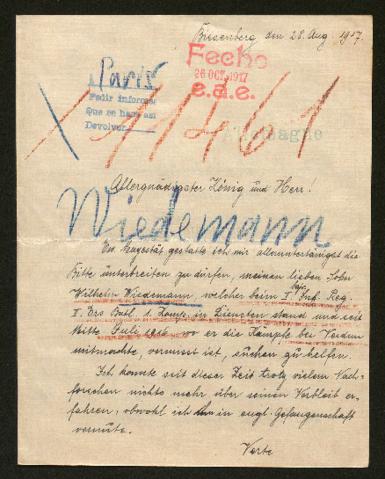 Biesenberg, den 28. Aug. 1917.
Paris
Fecho
26 OCT. 1917
e.a.e.
Pedir informes
Que se haga así
Devolver
Allemagne
Allergnädigster König und Herr!
Wiedemann
Eu. Majestät gestatte ich mir alleruntertänigst die
Bitte unterbreiten zu dürfen, meinen lieben Sohn
Wilhelm Wiedemann, welcher beim Inf. Reg.
II. Ers. Batl. 1. Komp. in Diensten stand und seit
Mitte Juli 1916 wo er die Kämpfe bei Verdun
mitmachte, vermisst ist, suchen zu helfen.
Ich konnte seit dieser Zeit trotz vielem Nach-
forschen nichts mehr über seinen Verbleib er-
fahren, obwohl ich ihn in engl. Gefangenschaft
vermute.